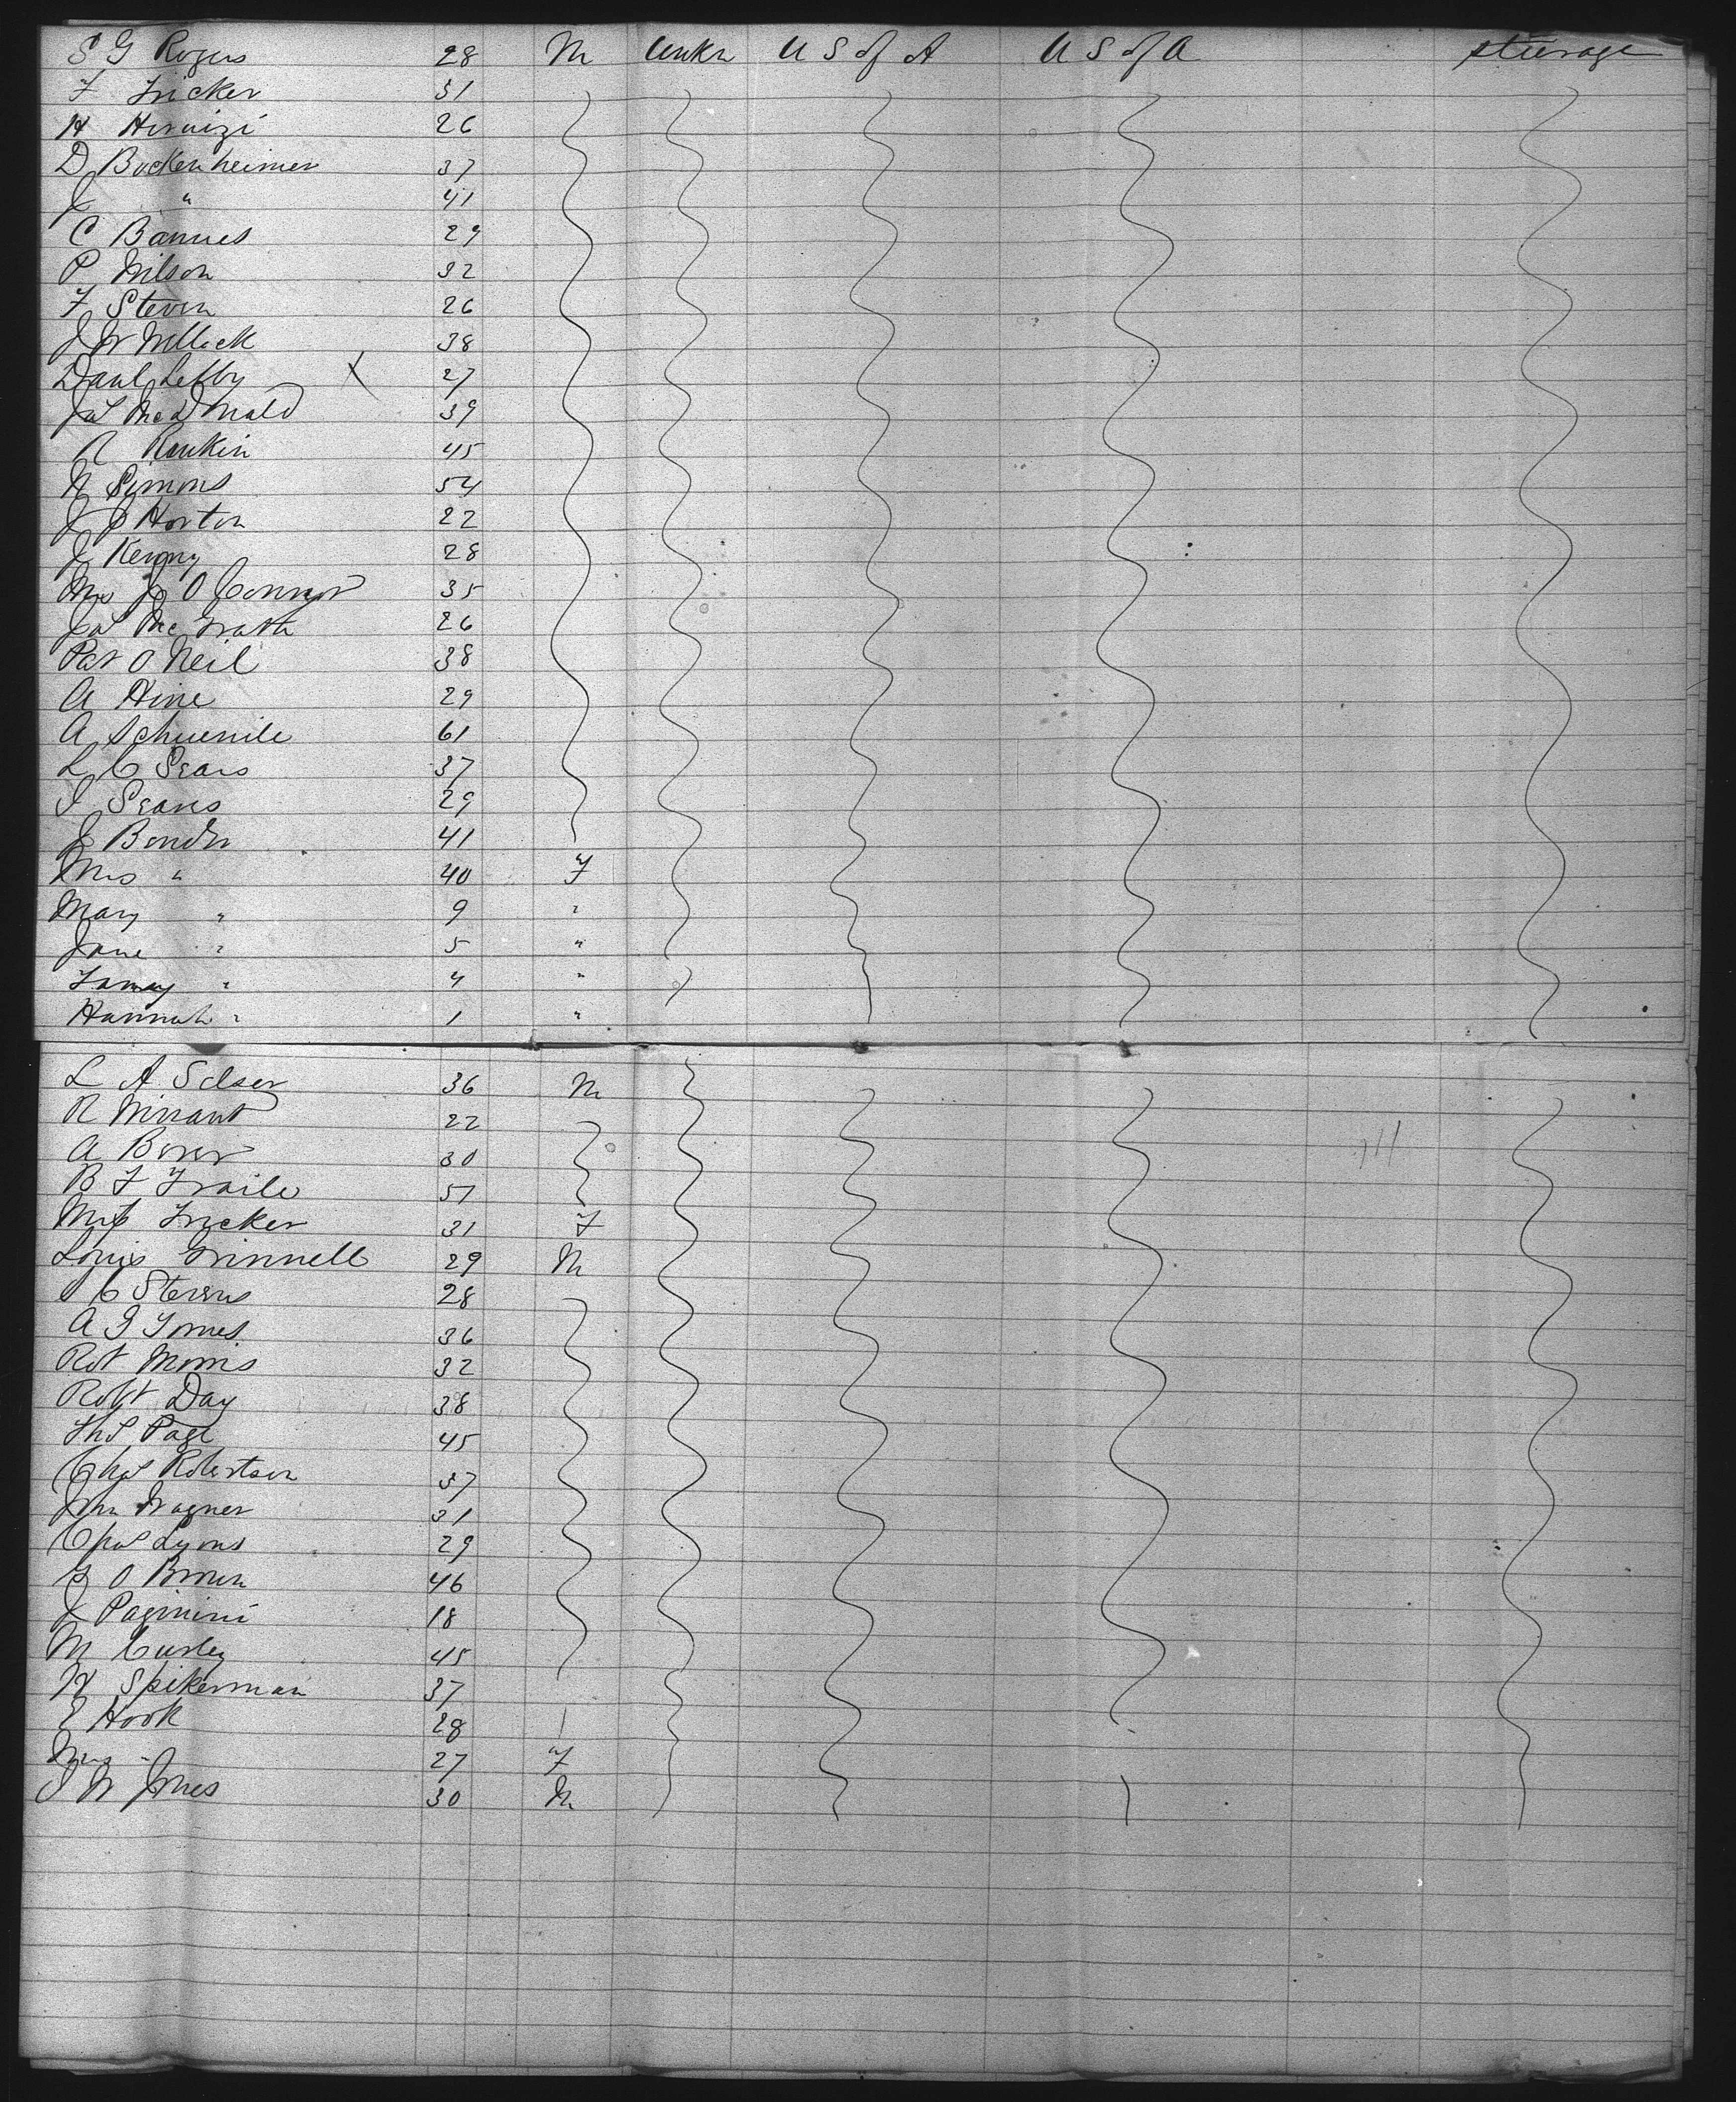 S G Rogers 28 M Unkn U S of A U S of A steerage
F Fricker 31
H Hirnizi 26
D Bockenheimer 37
J " 41
C Bannes 29
P Wilson 32
F Steven 26
J W Mellick 38
Danl Lefby X 27
Jas McDonald 39
R Rankin 45
N Simons 54
J J Horton 22
J Kenny 28
Mrs J O Connor 35
Jas McGrath 26
Pat O Neil 38
A Hine 29
A Schuenile 61
L C Sears 37
I Sears 29
J Bender 41
Mrs " 40 F
Mary " 9 "
Jane " 5 "
" 4 "
Hannah " 1 "
L A Selser 36 M
R 22
A 30
B F Fraile 51
Mrs Fricker 31 F
Louis Grinnell 29 M
C Stevens 28
A G Tomes 36
Rbt Morris 32
Robt Day 38
Ths Page 45
Chas Robertson 37
John Wagner 31
Chas Lyons 29
O Brown 46
J Paginini 18
M Curley 45
H Spikerman 37
E Hook 28
Mrs " 27 F
J W Jones 30 M